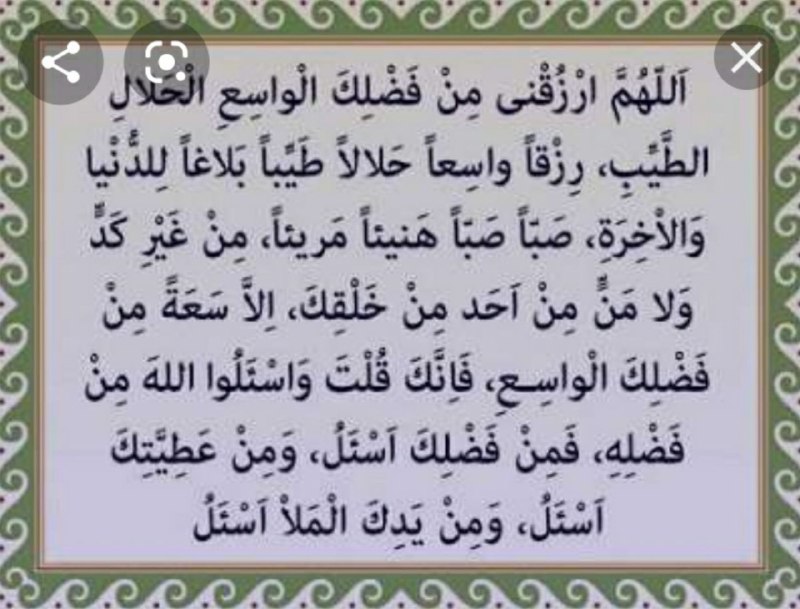 اَللّهُمَّ ارْزُقْنى مِنْ فَضْلِكَ الْواسِعِ الْحَلالِ
الطَّيِّبِ، رِزْقاً واسِعاً حَلالاً طَيِّباً بَلاغاً لِلدُّنْيا
وَالاْخِرَةِ، صَبّاً صَبّاً هَنيئاً مَريئاً، مِنْ غَيْرِ كَدٍّ
وَلا مَنٍّ مِنْ اَحَد مِنْ خَلْقِكَ، اِلاَّ سَعَةً مِنْ
فَضْلِكَ الْواسِـعِ، فَاِنَّكَ قُلْتَ وَاسْئَلُوا اللهَ مِنْ
فَضْلِهِ، فَمِنْ فَضْلِكَ اَسْئَلُ، وَمِنْ عَطِيَّتِكَ
اَسْئَلُ، وَمِنْ يَدِكَ الْمَلاْ اَسْئَلُ